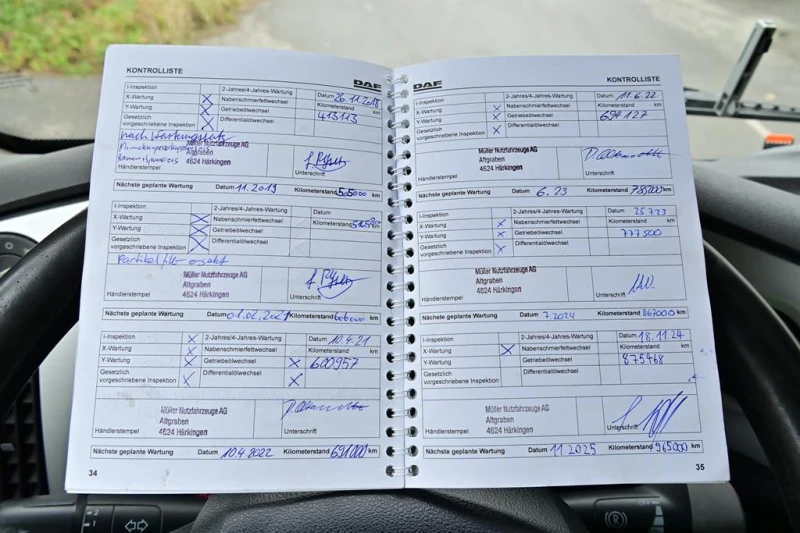 KONTROLLISTE
DAF
I-Inspektion 2-Jahres/4-Jahres-Wartung Datum 26.11.2018
X-Wartung Nabenschmierfettwechsel Kilometerstand km
Y-Wartung Getriebeölwechsel 413113
Gesetzlich vorgeschriebene Inspektion Differentialölwechsel
Müller Nutzfahrzeuge AG
Altgraben
4624 Härkingen
Händlerstempel Unterschrift
Nächste geplante Wartung Datum 11.2019 Kilometerstand 505000 km
I-Inspektion 2-Jahres/4-Jahres-Wartung Datum
X-Wartung Nabenschmierfettwechsel Kilometerstand km
Y-Wartung Getriebeölwechsel
Gesetzlich vorgeschriebene Inspektion Differentialölwechsel
Partikelfilter ersetzt
Müller Nutzfahrzeuge AG
Altgraben
4624 Härkingen
Händlerstempel Unterschrift
Nächste geplante Wartung Datum Kilometerstand km
I-Inspektion 2-Jahres/4-Jahres-Wartung Datum 10.4.21
X-Wartung Nabenschmierfettwechsel Kilometerstand km
Y-Wartung Getriebeölwechsel 600957
Gesetzlich vorgeschriebene Inspektion Differentialölwechsel
Müller Nutzfahrzeuge AG
Altgraben
4624 Härkingen
Händlerstempel Unterschrift
Nächste geplante Wartung Datum 10.4.2022 Kilometerstand 691000 km
34
DAF
KONTROLLISTE
I-Inspektion 2-Jahres/4-Jahres-Wartung Datum 11.6.22
X-Wartung Nabenschmierfettwechsel Kilometerstand km
Y-Wartung Getriebeölwechsel 694127
Gesetzlich vorgeschriebene Inspektion Differentialölwechsel
Müller Nutzfahrzeuge AG
Altgraben
4624 Härkingen
Händlerstempel Unterschrift
Nächste geplante Wartung Datum 6.23 Kilometerstand 785000 km
I-Inspektion 2-Jahres/4-Jahres-Wartung Datum 25.7.23
X-Wartung Nabenschmierfettwechsel Kilometerstand km
Y-Wartung Getriebeölwechsel 777500
Gesetzlich vorgeschriebene Inspektion Differentialölwechsel
Müller Nutzfahrzeuge AG
Altgraben
4624 Härkingen
Händlerstempel Unterschrift
Nächste geplante Wartung Datum 7.2024 Kilometerstand 867000 km
I-Inspektion 2-Jahres/4-Jahres-Wartung Datum 18.11.24
X-Wartung Nabenschmierfettwechsel Kilometerstand km
Y-Wartung Getriebeölwechsel 875468
Gesetzlich vorgeschriebene Inspektion Differentialölwechsel
Müller Nutzfahrzeuge AG
Altgraben
4624 Härkingen
Händlerstempel Unterschrift
Nächste geplante Wartung Datum 11.2025 Kilometerstand 965000 km
35